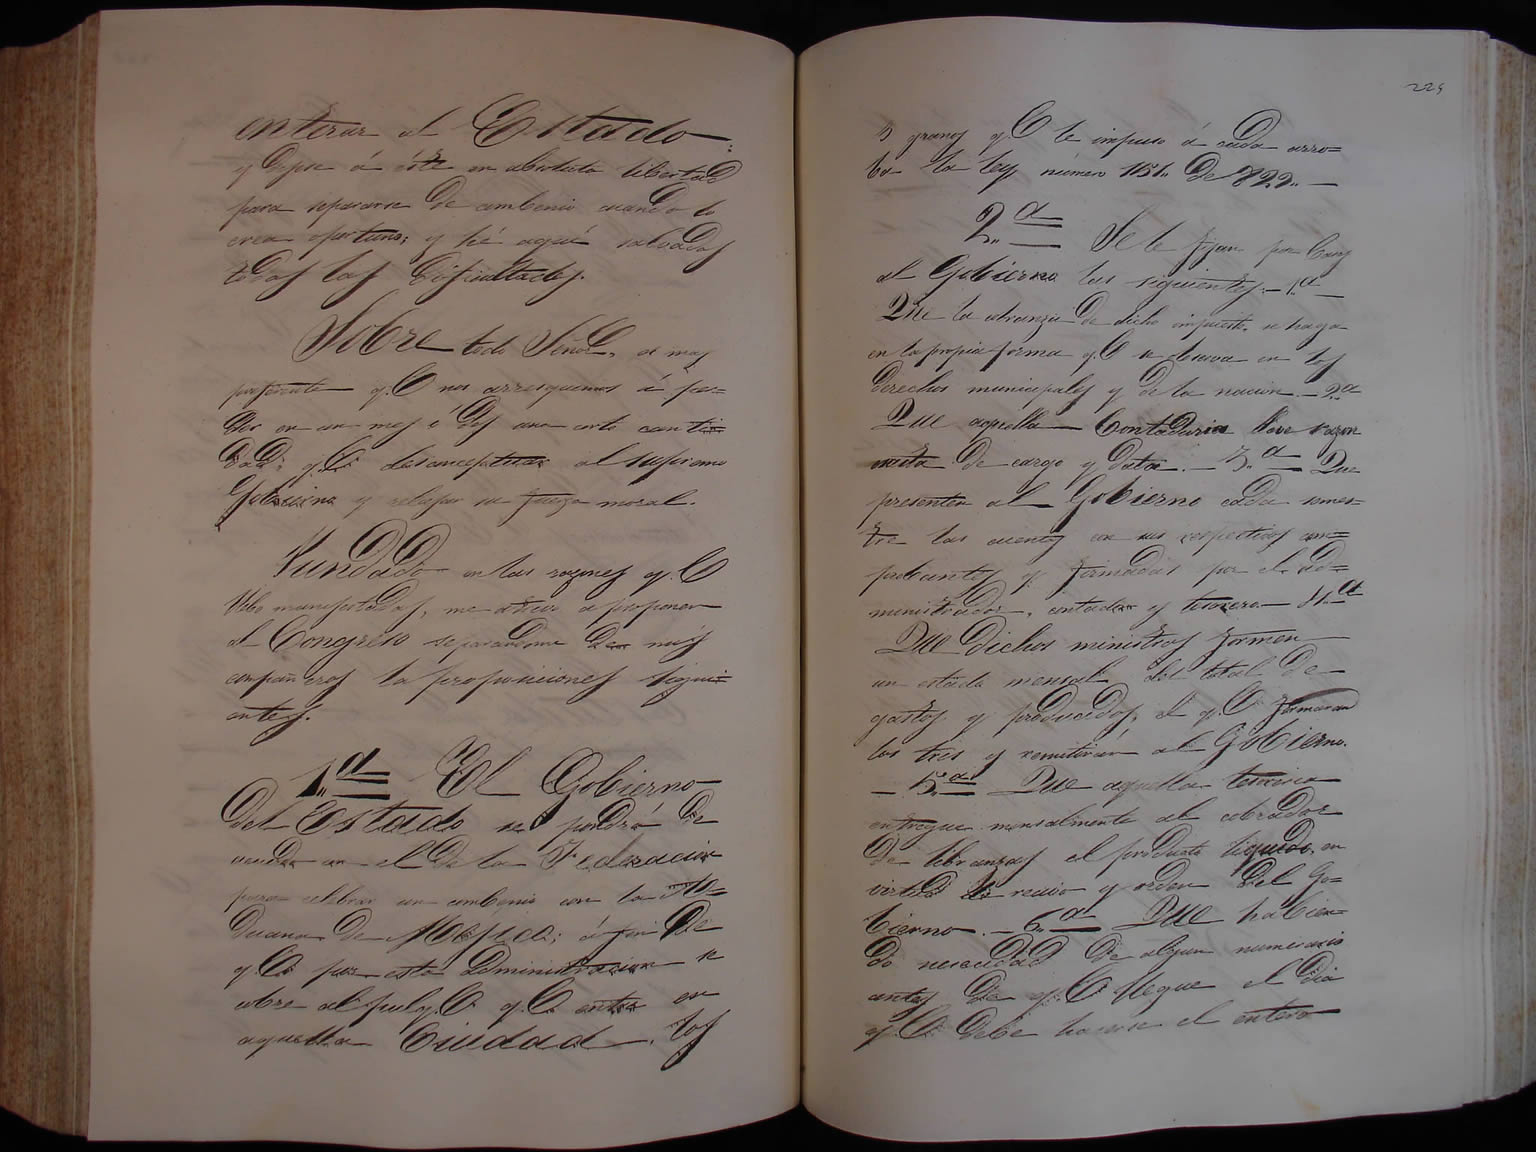 enterar al Estado
y dejese á éste en absoluta libertad
para separarse de combenio cuando lo
crea oportuno; y hé aquí salvados
todas las dificultades.
Sobre todo Señor, es mas
preferente q.e nos arresguemos á per=
der en un mes ó dos una corta canti=
dad; q.e desconceptuar al supremo
Gobierno y relajar su fuerza moral.
Fundado en las razones q.e
llebo manifestadas, me atrevo a proponer
al Congreso separandome de mis
compañeros la proposiciones sigui=
entes.
1.a El Gobierno
del Estado se pondrá de
acuerdo con el de la Federacion
para celebrar un combenio con la A=
duana de Mexico; á fin de
q.e por esta administracion se
cobre al pulq.e q.e entra en
aquella Ciudad, los
225
3 granos q.e le impuso á cada arro=
ba la ley número 1151. de 829. —
2.a Se le fijan por bases
al Gobierno las siguientes. — 1.a —
Que la cobranza de dicho impuesto, se haga
en la propia forma q.e se observa en los
derechos municipales y de la nacion. — 2.a
Que aquella Contaduria lleve razon
de cargo y data. — 3.a — Que
presenten al Gobierno cada semes=
tre las cuentas con sus respectivos com=
probantes y firmadas por el ad=
ministrador, contador y tesorero — 4.a
Que dichos ministros formen
un estado mensal del total de
gastos y producidos, el q.e formaran
los tres y remitiran al Gobierno.
— 5.a — Que aquella tesoreria
entregue mensalmente al cobrador
de libranzas el producto liquido, en
virtud de recivo y orden del Go=
bierno. — 6.a — Que habien=
do necesidad de algun numerario
antes de q.e llegue el dia
q.e debe hacerse el entero